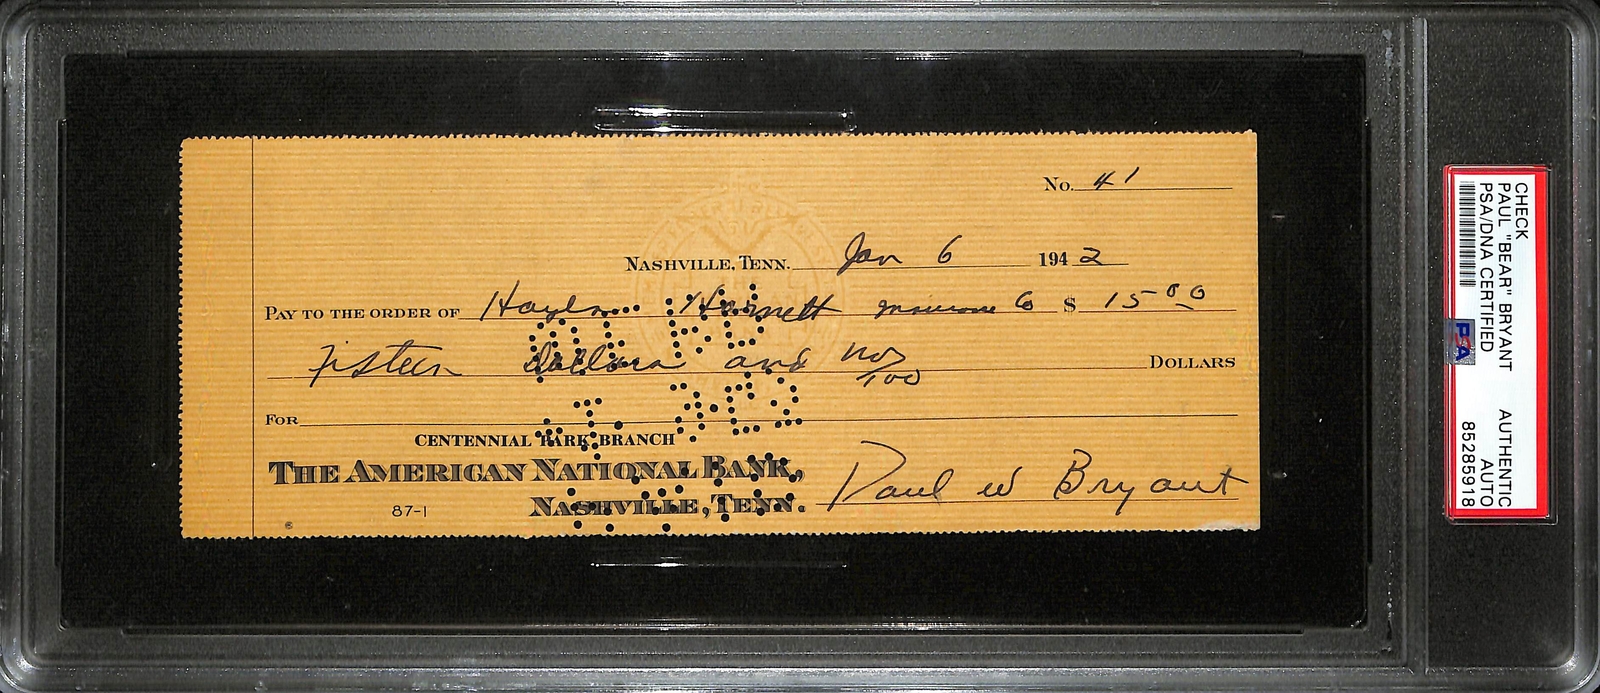 No. 41
NASHVILLE, TENN. Jan 6 1942
PAY TO THE ORDER OF Insurance Co $ 15 00
Fifteen dollars and no/100 DOLLARS
FOR
CENTENNIAL PARK BRANCH
THE AMERICAN NATIONAL BANK,
NASHVILLE, TENN.
87-1
Paul W Bryant
CHECK
PAUL "BEAR" BRYANT AUTHENTIC
AUTO
PSA/DNA CERTIFIED 85285918
PSA